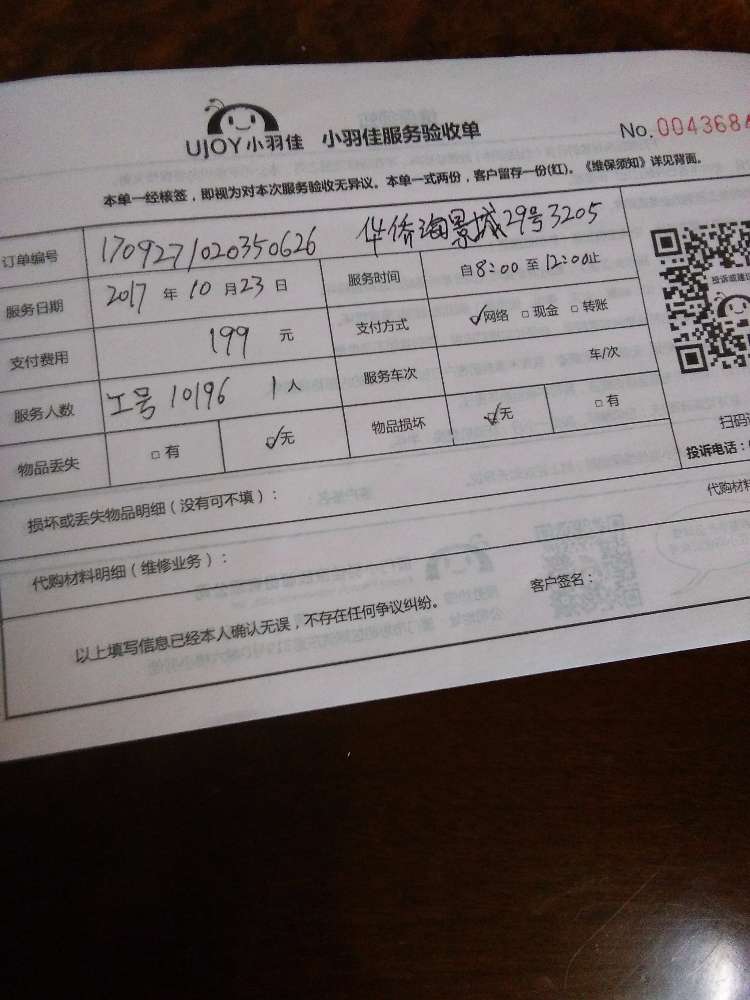 UJOY小羽佳 小羽佳服务验收单 No.0043684
本单一经核签，即视为对本次服务验收无异议。本单一式两份，客户留存一份(红)。《维保须知》详见背面。
订单编号 170927102035062​6 华侨海景城29号3205
服务日期 2017 年 10 月 23 日 服务时间 自8:00 至 12:00止
支付费用 199 元 支付方式 ☑网络 □现金 □转账
服务人数 工号10196 1人 服务车次 车/次
物品丢失 □有 ☑无 物品损坏 ☑无 □有
投诉或建议
扫码
投诉电话：
损坏或丢失物品明细（没有可不填）： 代购材料
代购材料明细（维修业务）：
以上填写信息已经本人确认无误，不存在任何争议纠纷。 客户签名：